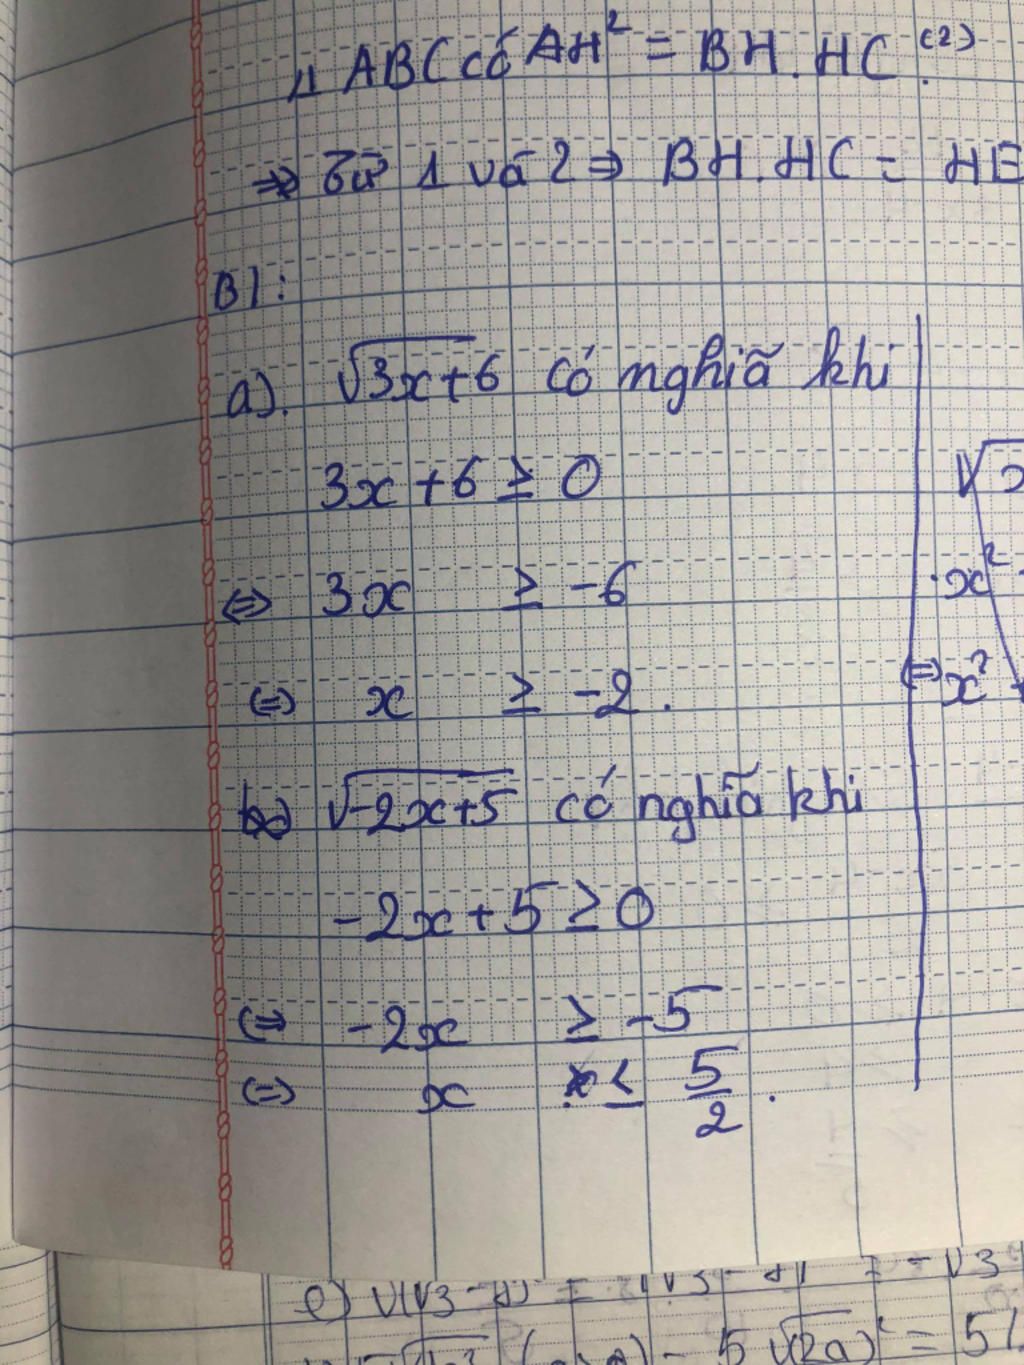 Δ ABC có AH² = BH.HC (2)
=> Từ 1 và 2 => BH.HC = HE
B1:
a). √3x+6 có nghĩã khi
3x+6 ≥ 0
<=> 3x ≥ -6
<=> x ≥ -2.
b) √-2x+5 có nghĩã khi
-2x+5 ≥ 0
<=> -2x ≥ -5
<=> x ≤ 5/2.
x²
<=> x²